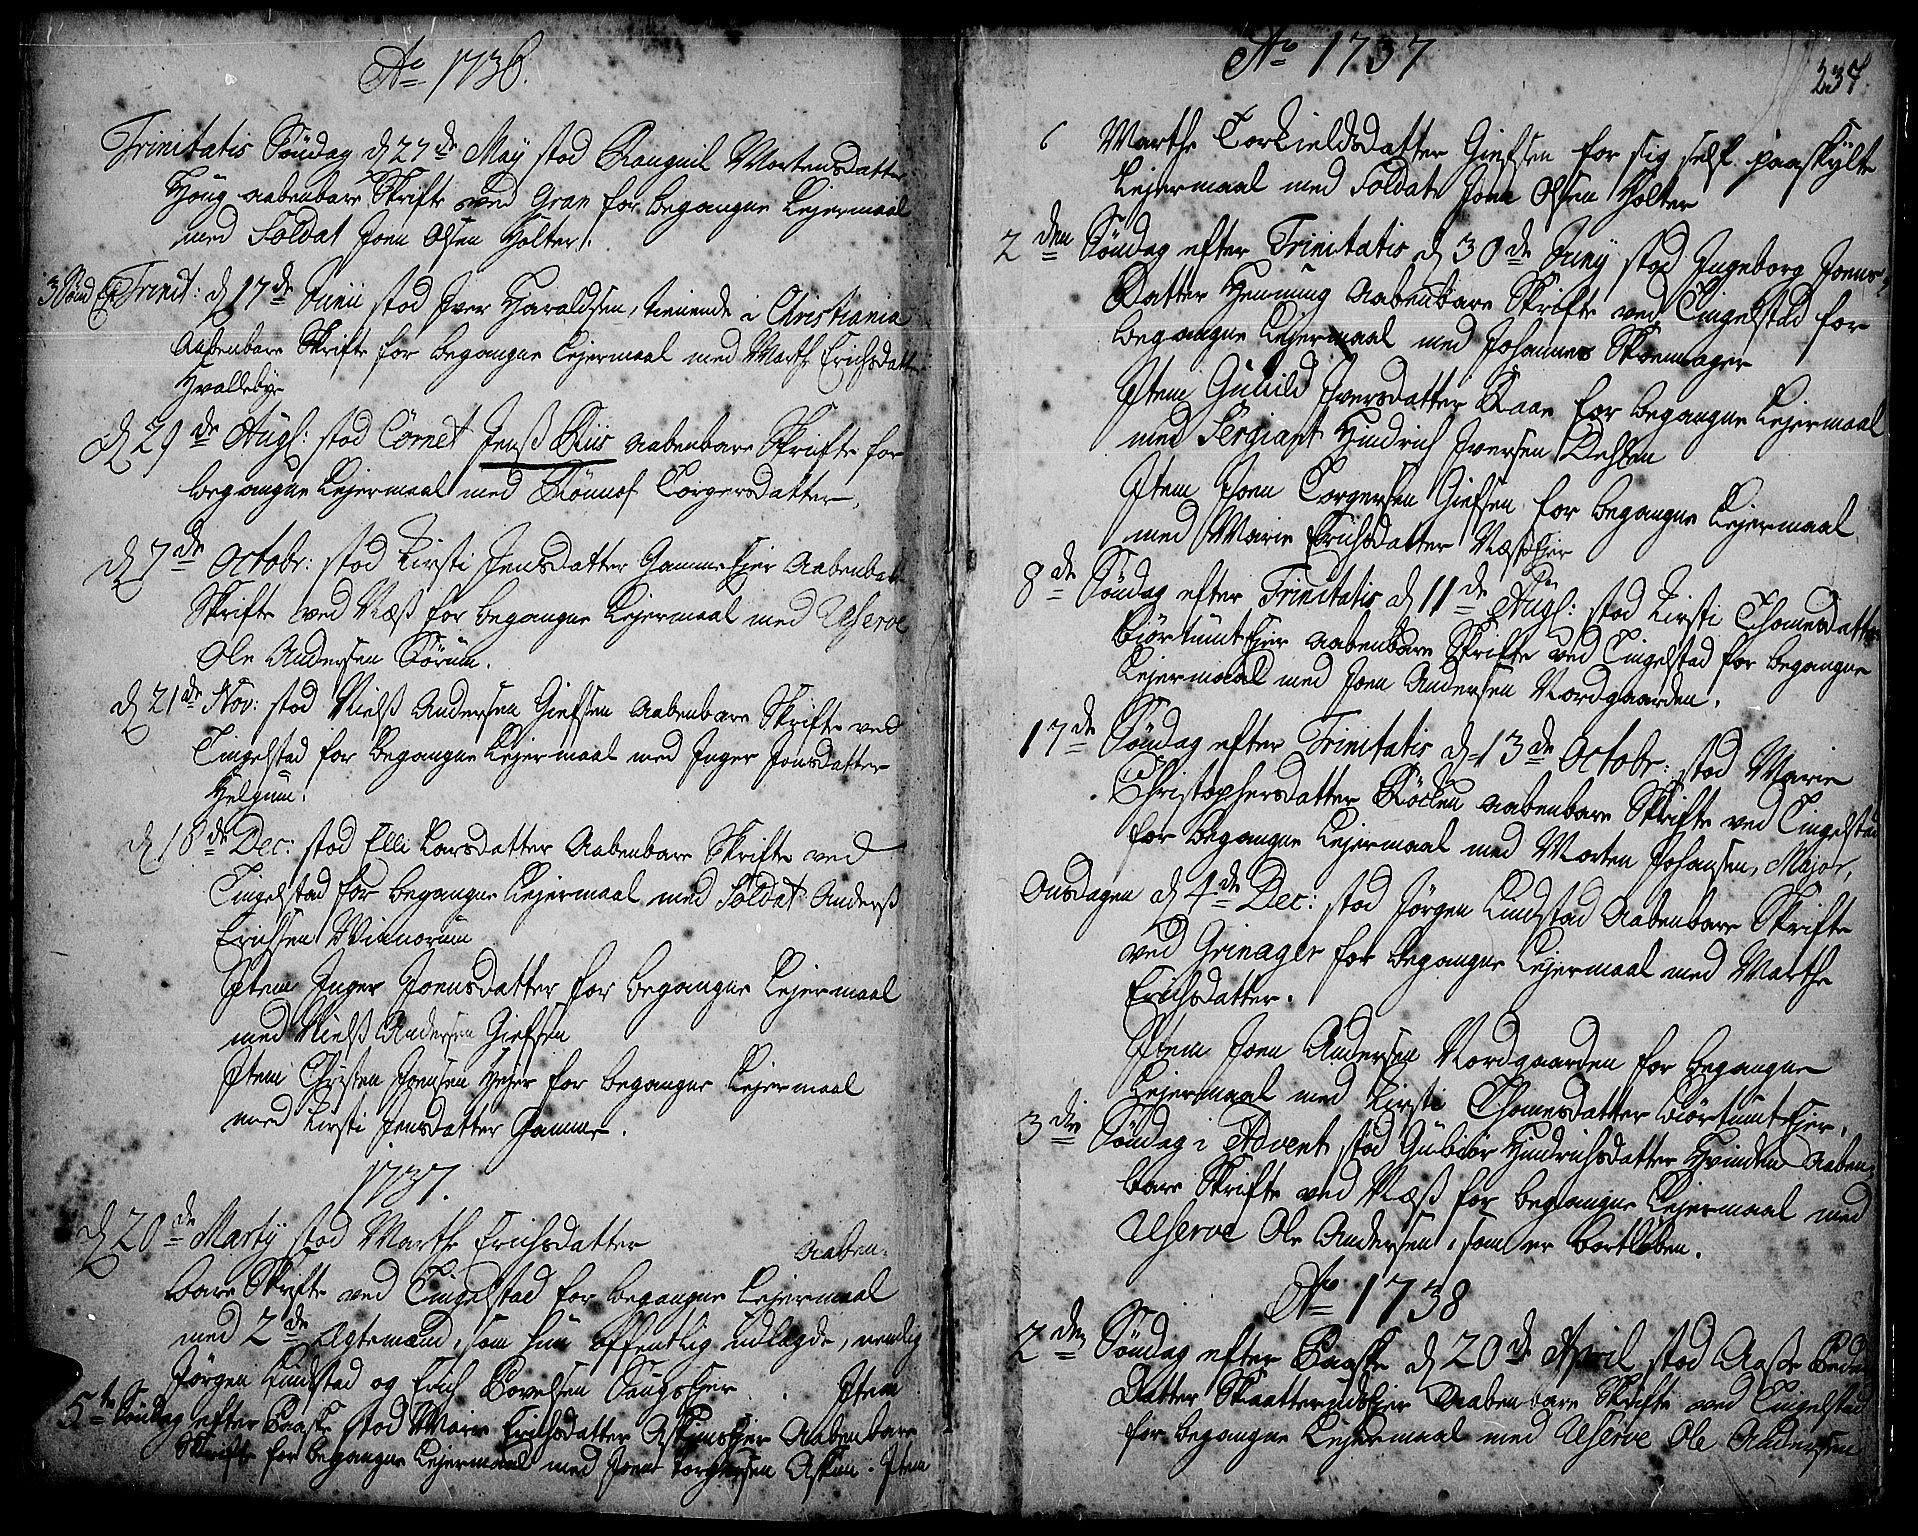 Ao 1736.
Trinitatis Söndag d 27de Maÿ stod Ranguil Mortensdatter
Houg aabenbare Skrifte ved Gran for begangne Lejermaal
med Soldat Joen Olsen Holter.
3 Sönd Ef Trinit: d 17de Junii stod Iver Haraldsen, tienende i Christiania
Aabenbare Skrifte for begangne Lejermaal med Marthe Erichsdatter
Hvallebye
d 29de Augs: stod Cornet Jenß Riis aabenbare Skrifte for
begangne Lejermaal med Rönnof Torgersdatter.
d 7de Octobr: stod Kirsti Jensdatter Gamme Ejer Aabenbare
Skrifte ved Næß for begangne Lejermaal med Reserve
Ole Andersen Sörum.
d 21de Nov: stod Nielß Andersen Giefsen Aabenbare Skrifte ved
Tingelstad for begangne Lejermaal med Inger Jonsdatter
Helgum.
d 18de Dec: stod Elli Larsdatter Aabenbare Skrifte ved
Tingelstad for begangne Lejermaal med Soldat Anderß
Erichsen Winnorum
Item Inger Joensdatter for begangne Lejermaal
med Nielß Andersen Giefsen
Item Christen Joensen Vejer for begangne Lejermaal
med Kirsti Jensdatter Gamme.
1737.
d 20de Martÿ stod Marthe Erichsdatter Aaben-
bare Skrifte ved Tingelstad for begangne Lejermaal
med 2de Ægtemænd, som hun offentlig udlagde, nemlig
Jörgen Lindstad og Erich Povelsen . Item
5te Söndag efter Paaske stod Marie Erichsdatter Aabenbare
Skrifte for begangne Lejermaal med Joen Torgersen Askim. Item
Ao 1737
237.
6 Marthe Torkieldsdatter Giefsen for sig self paaskÿlte
Lejermaal med Soldate Joen Olsen Holter
2den Söndag efter Trinitatis d 30de Junÿ stod Ingeborg Joens-
Datter Henning Aabenbare Skrifte ved Tingelstad for
begangne Lejermaal med Johannes Skoemager
Item Gunild Iversdatter Raae for begangne Lejermaal
med Sergiant Hindrich Iversen Dehlen
Item Joen Torgersen Giefsen for begangne Lejermaal
med Marie Erichsdatter NæßEjer
8de Söndag efter Trinitatis d 11de Augs: stod Kirsti Thomesdatter
BiörtuntEjer aabenbare Skrifte ved Tingelstad for begangne
Lejermaal med Joen Andersen Nordgaarden.
17de Söndag efter Trinitatis d 13de Octobr: stod Marie
Christophersdatter Röcken aabenbare Skrifte ved Tingelstad
for begangne Lejermaal med Morten Johansen, Major,
Onsdagen d 4de Dec: stod Jörgen Lindstad Aabenbare Skrifte
ved Grinager for begangne Lejermaal med Marthe
Erichsdatter.
Item Joen Andersen Nordgaarden for begangne
Lejermaal med Kirsti Thomesdatter BiörtuntEjer.
3die Söndag i Advent stod Gubiör Hindrichsdatter Hvinden Aaben-
bare Skrifte ved Næß for begangne Lejermaal med
Reserve Ole Andersen, som er bortlöben.
Ao 1738
2den Söndag efter Paaske d 20de April stod Aaße Peders
Datter Aabenbare Skrifte ved Tingelstad
for begangne Lejermaal med Reserve Ole Andersen